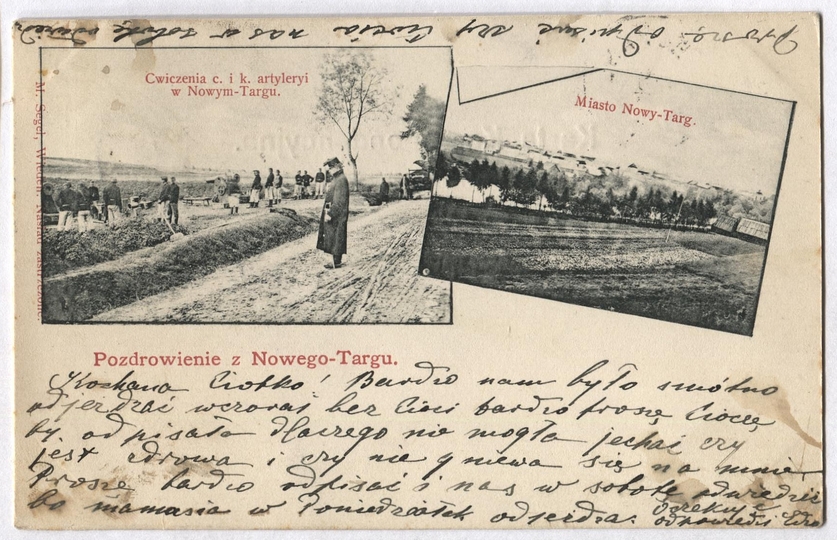 Proszę odpisać czy Ciocia nas w sobotę odwiedzi
Cwiczenia c. i k. artyleryi
w Nowym-Targu.
Miasto Nowy-Targ.
M. Segel, Nakład zastrzeżony
Pozdrowienie z Nowego-Targu.
Kochana Ciotko! Bardzo nam było smótno
odjerdzać wczoraj bez Cioci bardzo proszę Ciocię
by odpisała dlaczego nie mogła jechać czy
jest zdrowa i czy nie gniewa się na mnie
Proszę bardzo odpisać i nas w sobotę odwiedzić
bo mamasia w Poniedziałek odjerdza. Oczekuję
odpowiedzi